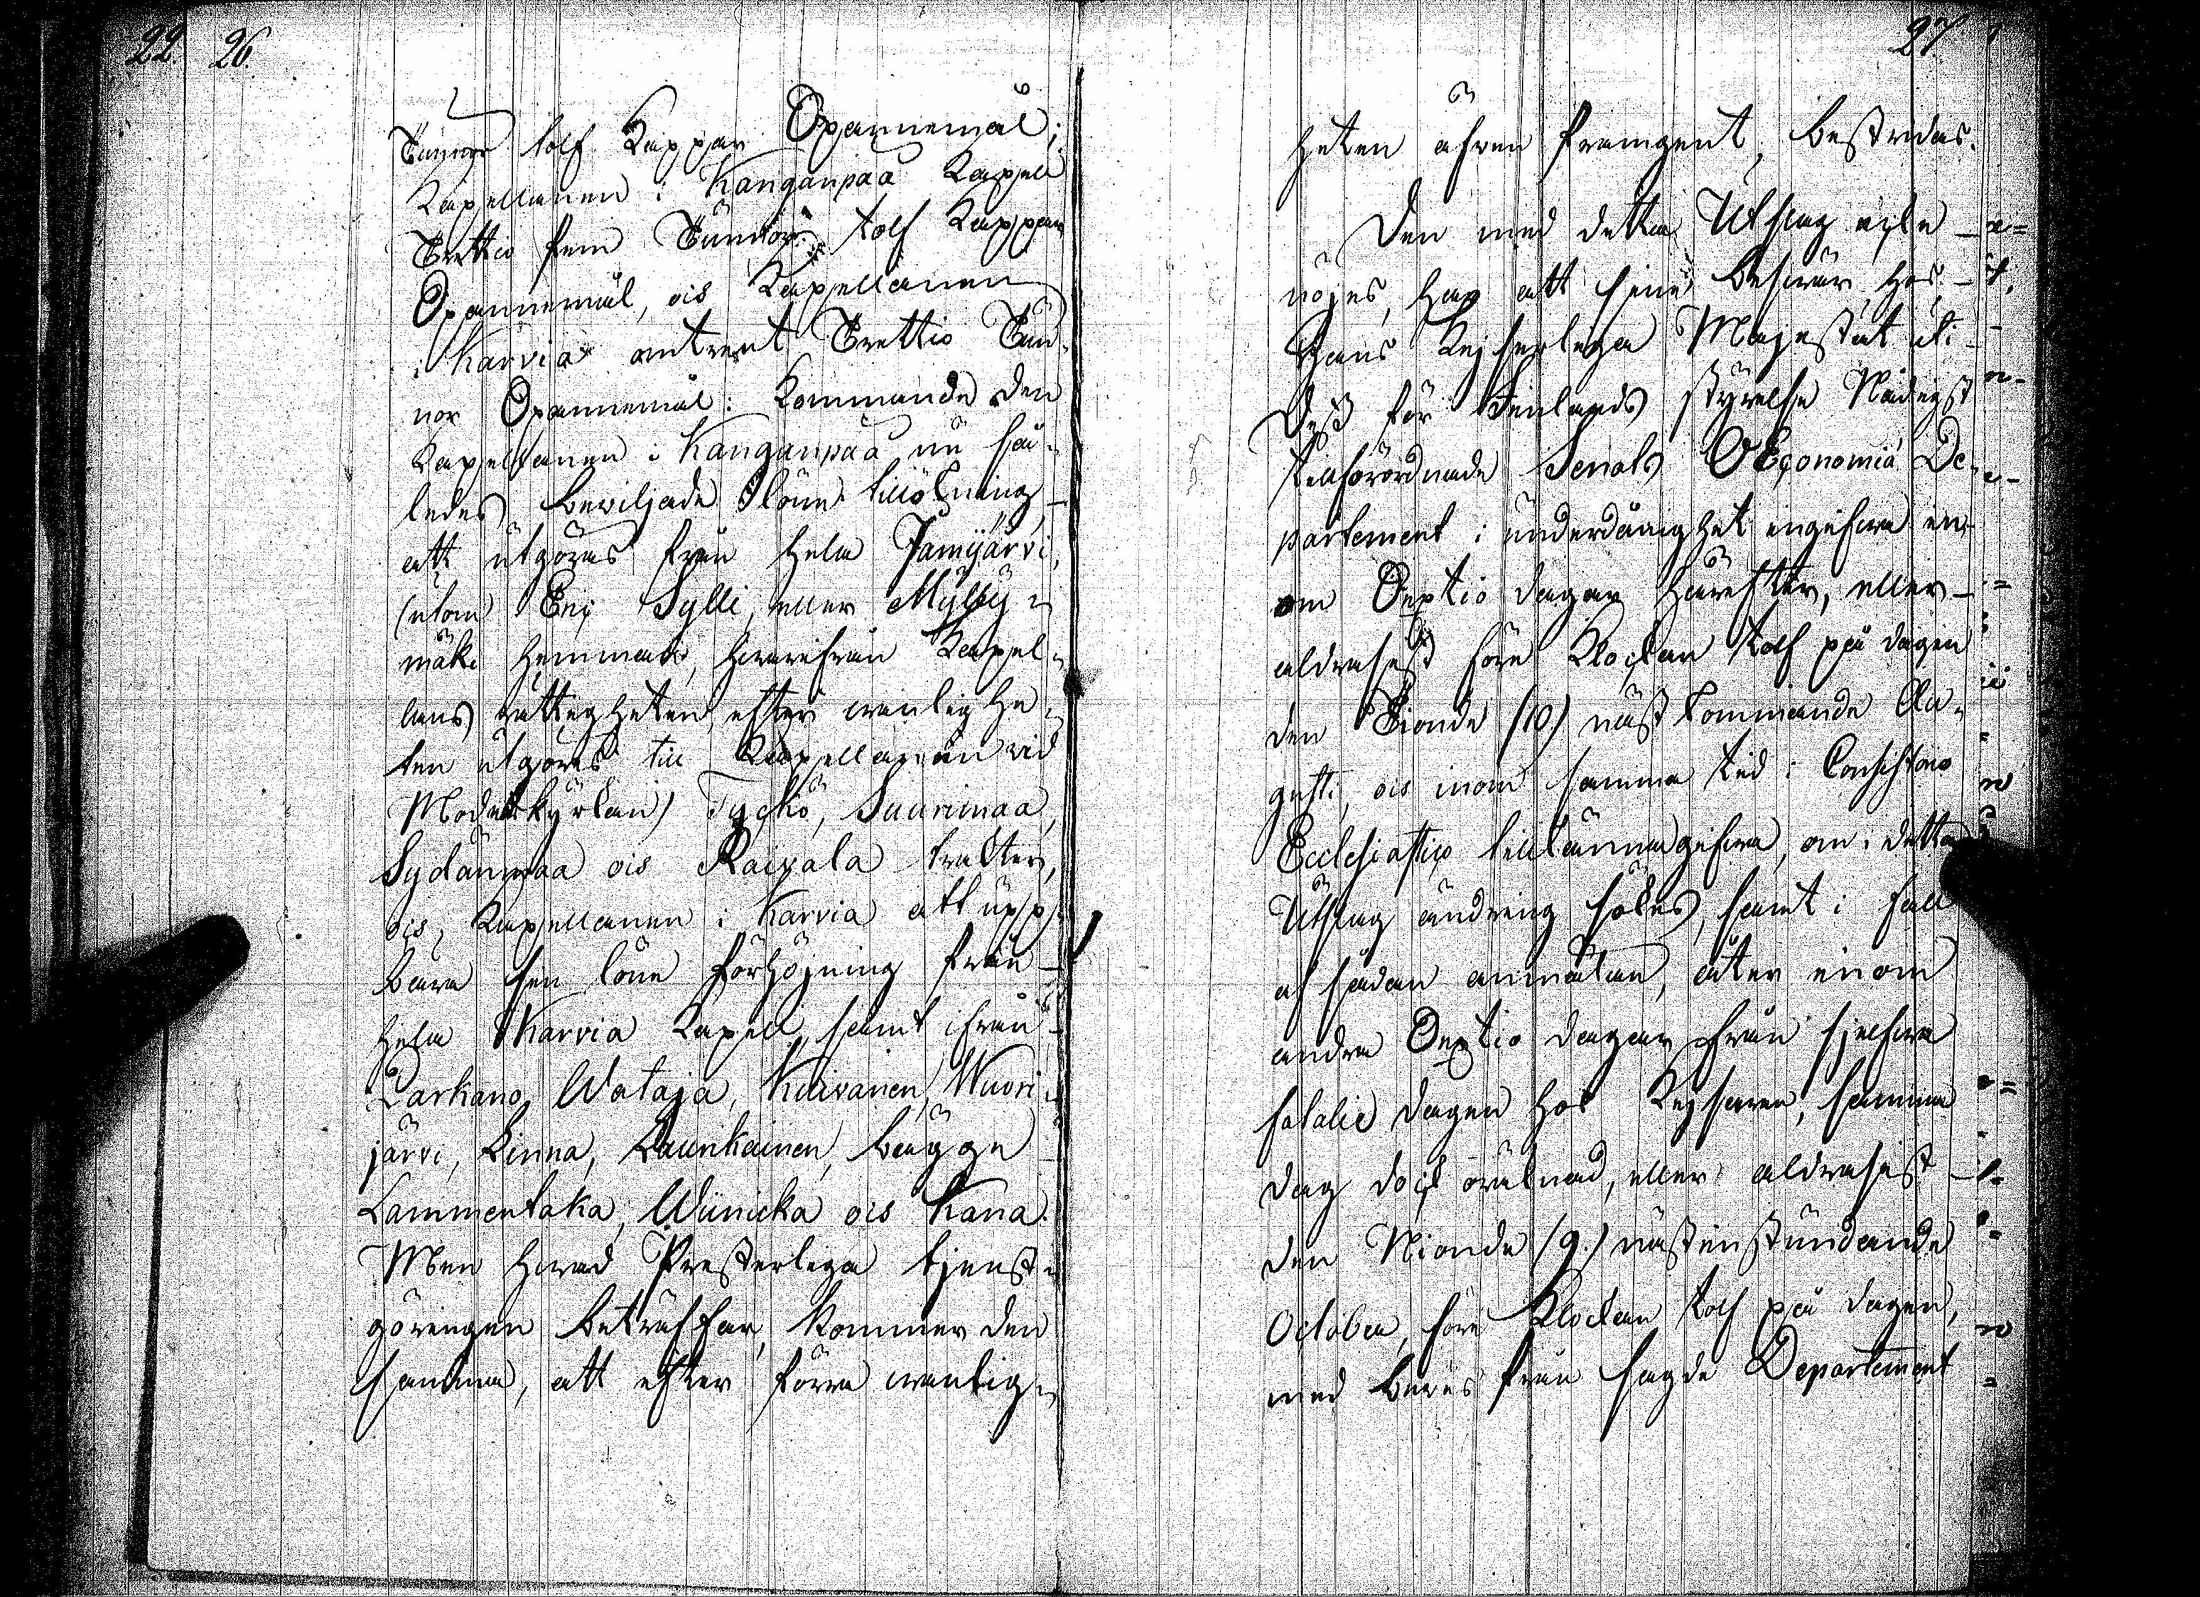 22 26
Tunnor tolf Kappar Spannemål;
Kapellanen i Kangaspää Kapell
Trettio fem Tunnor tolf Kappar
Spannemål, ois Kapellanen
i Karvia omtrent Trettio Tun-
nor Spannemål: Kommande den
Kapellanen i Kangaspää nu så-
ledes beviljade löne tillökning
att utgöras från hela Jämijärvi,
(utom Eri Sylli, eller Mylly-
mäki hemman, hvarifrån Kapel-
lans rättigheten efter vanlighe-
ten utgöres till Kapellanen vid
Moderkyrkan) Tyckö, Suurimaa,
Sydänmaa ois Raipala trakter,
ois Kapellanen i Karvia att upp-
bära sin löne förhöjning från
hela Karvia Kapell, samt ifrån
Parkano, Wataja, Kuivanen, Wuori-
järvi, Linna, Laurikainen, bägge
Lammentaka, Wiinicka ois Kana.
Men hvad Presterliga tjenst-
göringen beträffar, kommer den
samma, att efter förra vanlig-
27
heten äfven framgent, bestridas.
Den med detta Utslag ej är
nöjes, har att sine besvär, hos
Hans Kejserliga Majestät uti
Dess för Finlands styrelse Nådigst
tillförordnade Senats OEconomiæ De-
partement i underdånighet ingifva in-
om Sextio dagar härefter, eller
aldrasist före Klockan tolf på dagen
den Tionde (10) näst kommande Au-
gusti, ois inom samma tid i Consistorio
Ecclesiastico tillkännagifva, om i detta
Utslag ändring sökes, samt i fall
af sådan anmälan, åter inom
andra Sextio dagar från sjelfva
fatalie dagen hos Kejsaren, samma
dag dock oräknad, eller aldrasist
den Nionde (9.) nästinstundande
October, före Klockan tolf på dagen,
med bevis från sagde Departement